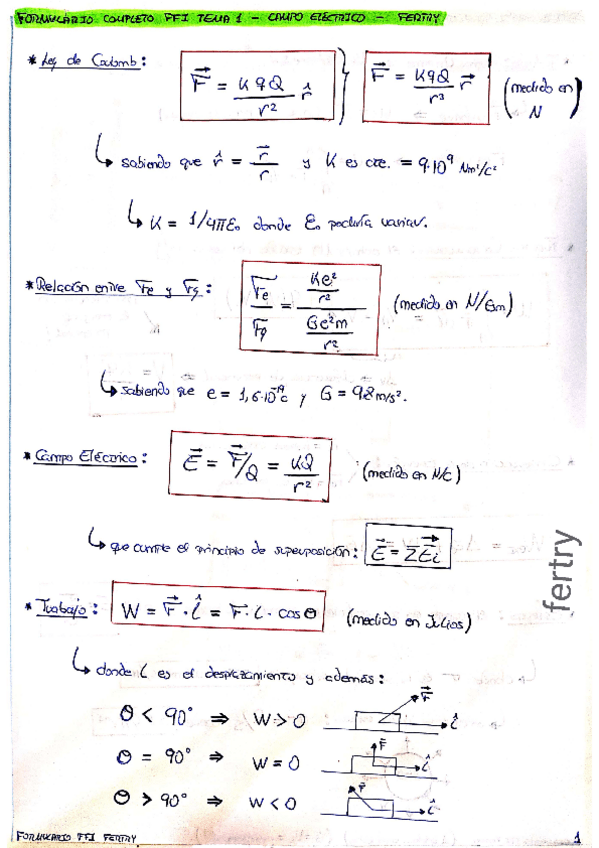 FORMULARIO COMPLETO FFI TEMA 1 - CAMPO ELÉCTRICO - FERTRY
* Ley de Coulomb: F⃗ = KqQ/r² r̂ } F⃗ = KqQ/r³ r⃗ (medido en N)
↳ sabiendo que r̂ = r⃗/r y K es cte. = 9·10⁹ Nm²/C²
↳ K = 1/4πε₀ donde ε₀ podría variar.
* Relación entre Fe y Fg: Fe/Fg = (Ke²/r²)/(Ge²m/r²) (medido en N/Gm)
↳ sabiendo que e = 1,6·10⁻¹⁹c y G = 9,8 m/s².
* Campo Eléctrico: E⃗ = F⃗/Q = KQ/r² (medido en N/C)
↳ que cumple el principio de superposición: E⃗ = ΣE⃗i
* Trabajo: W = F⃗ · l̂ = F · l · cos θ (medido en Julios)
↳ donde l es el desplazamiento y además:
θ < 90° ⇒ W > 0 F⃗ l̂
θ = 90° ⇒ W = 0 F⃗ l̂
θ > 90° ⇒ W < 0 F⃗ l̂
fertry
FORMULARIO FFI FERTRY 1